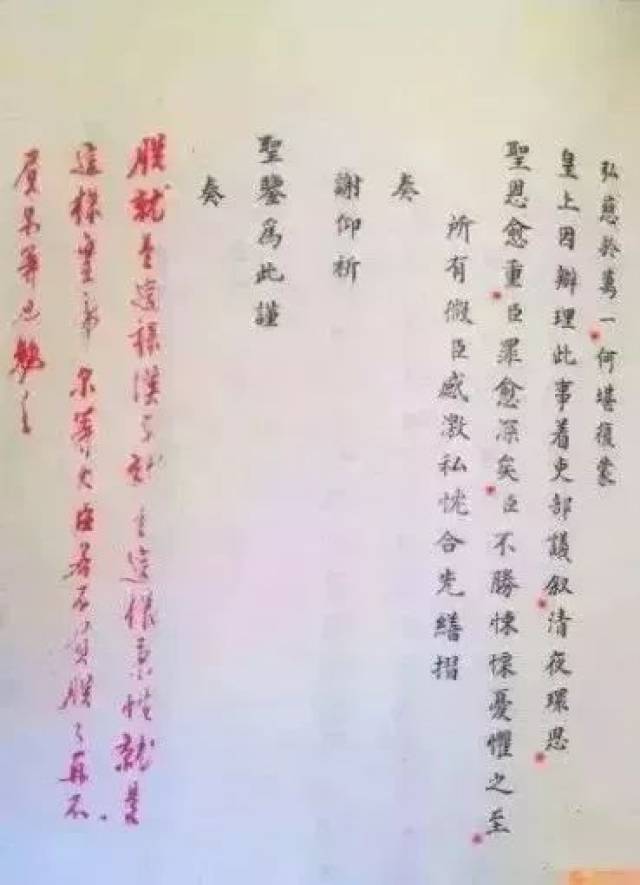 弘慈於萬一何堪復蒙
皇上因辦理此事着吏部議叙清夜環思
聖恩愈重臣罪愈深矣臣不勝悚慄憂懼之至
所有微臣感激私忱合先繕摺
奏
謝仰祈
聖鑒爲此謹
奏
朕就是這樣漢子就是這樣秉性就是
這樣皇帝尔等大臣若不負朕々再不
負尔等也勉之